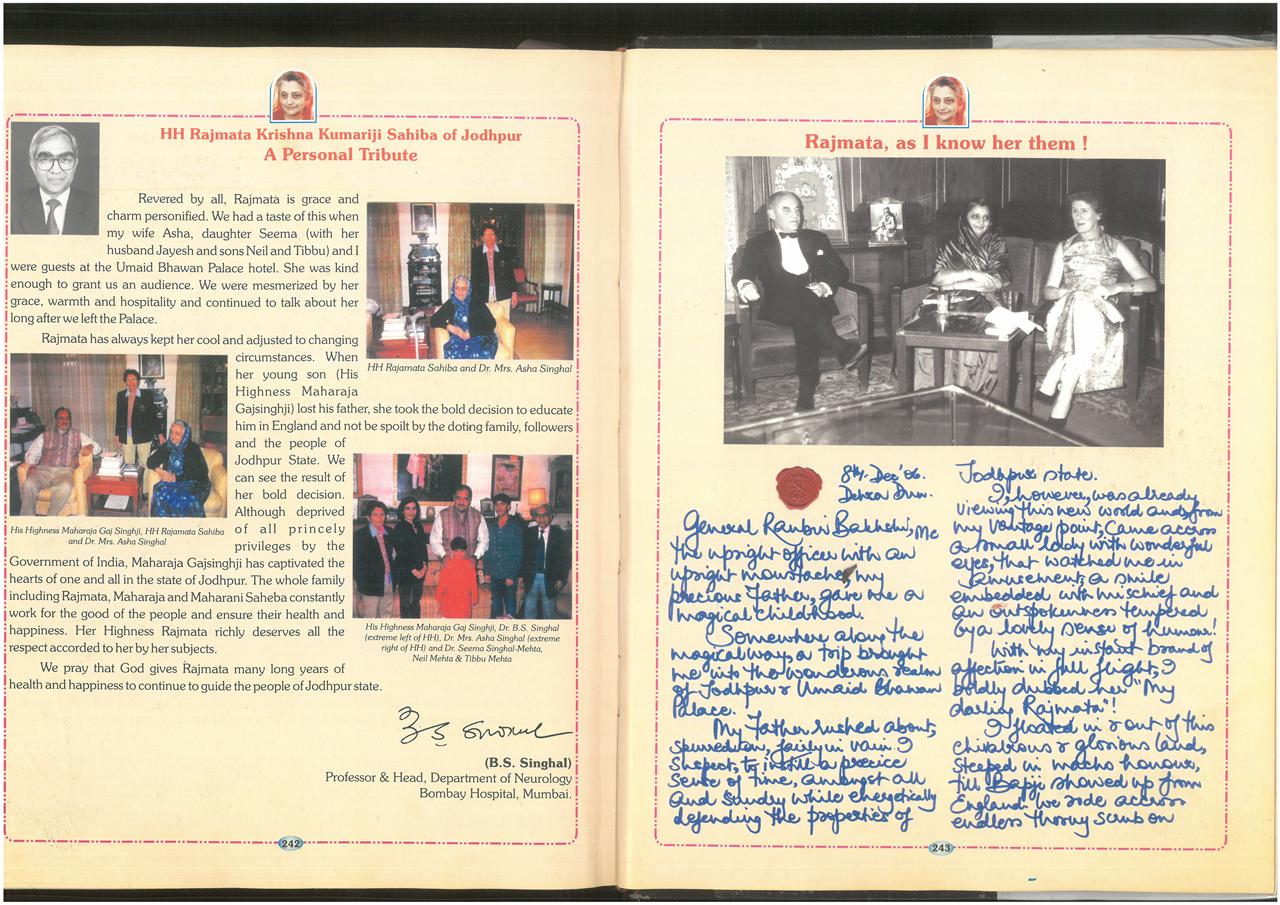 HH Rajmata Krishna Kumariji Sahiba of Jodhpur
A Personal Tribute
Revered by all, Rajmata is grace and
charm personified. We had a taste of this when
my wife Asha, daughter Seema (with her
husband Jayesh and sons Neil and Tibbu) and I
were guests at the Umaid Bhawan Palace hotel. She was kind
enough to grant us an audience. We were mesmerized by her
grace, warmth and hospitality and continued to talk about her
long after we left the Palace.
HH Rajamata Sahiba and Dr. Mrs. Asha Singhal
Rajmata has always kept her cool and adjusted to changing
circumstances. When
her young son (His
Highness Maharaja
Gajsinghji) lost his father, she took the bold decision to educate
him in England and not be spoilt by the doting family, followers
and the people of
Jodhpur State. We
can see the result of
her bold decision.
Although deprived
of all princely
privileges by the
Government of India, Maharaja Gajsinghji has captivated the
hearts of one and all in the state of Jodhpur. The whole family
including Rajmata, Maharaja and Maharani Saheba constantly
work for the good of the people and ensure their health and
happiness. Her Highness Rajmata richly deserves all the
respect accorded to her by her subjects.
His Highness Maharaja Gaj Singhji, HH Rajamata Sahiba
and Dr. Mrs. Asha Singhal
His Highness Maharaja Gaj Singhji, Dr. B.S. Singhal
(extreme left of HH), Dr. Mrs. Asha Singhal (extreme
right of HH) and Dr. Seema Singhal-Mehta,
Neil Mehta & Tibbu Mehta
We pray that God gives Rajmata many long years of
health and happiness to continue to guide the people of Jodhpur state.
(B.S. Singhal)
Professor & Head, Department of Neurology
Bombay Hospital, Mumbai.
242
Rajmata, as I know her them !
8th Dec '06.
Dehra Dun.
General Ranbir Bakhshi, Mc
the upright officer with an
upright moustache, my
precious Father, gave me a
magical childhood.
Somewhere along the
magical way, a trip brought
me into the wonderous realm
of Jodhpur & Umaid Bhawan
Palace.
My Father rushed about,
spurred on, fairly in vain I
suspect, to instill a precise
sense of time, amongst all
and sundry while energetically
defending the properties of
Jodhpur state.
I, however, was already
viewing this new world and from
my vantage point, came accross
a small lady with wonderful
eyes, that watched me in
amusement, a smile
embedded with mischief and
an outspokenness tempered
by a lovely sense of humour!
With my instant brand of
affection in full flight, I
boldly dubbed her "My
darling Rajmata"!
I floated in & out of this
chivalrous & glorious land,
steeped in macho honour,
till Bapji showed up from
England. We rode accross
endless thorny scrub on
243